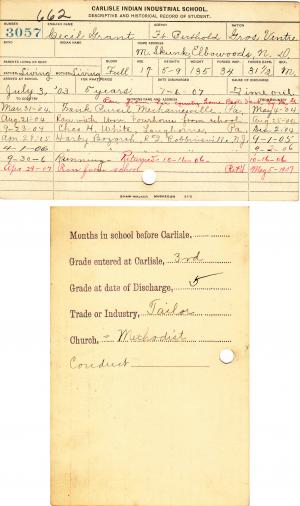 662
CARLISLE INDIAN INDUSTRIAL SCHOOL.
DESCRIPTIVE AND HISTORICAL RECORD OF STUDENT.
NUMBER ENGLISH NAME AGENCY NATION
3057 Cecil Grant Ft Berthold Gros Ventre
M. Skunk, Elbowoods, N. D.
PARENTS LIVING OR DEAD BLOOD AGE HEIGHT WEIGHT SEX
Living Living Full 17 5-9 135 34 31½ M
ARRIVED AT SCHOOL FOR WHAT PERIOD DATE DISCHARGED CAUSE OF DISCHARGE
July 3, '03 5 years 7-6-07 Time out
TO COUNTRY PATRONS NAME AND ADDRESS FROM COUNTRY
Mar 31-04 Frank Mechanicsville Pa, May 4-04
Aug 21-04 Ran with Wm from school Aug 25-04
9-23-04 Chas H. White, Langhorne, Pa. Dec 2-04
Apr 28-05 Harby Robbinsville, N.J. 9-1-05
4-1-06 " " " " 9-2-06
9-30-06 Running - Returned 10-16-06. 10-16-06
Apr 29-07 Ran from school May 5-1907
SHAW-WALKER MUSKEGON
Months in school before Carlisle,
Grade entered at Carlisle, 3rd
Grade at date of Discharge, 5
Trade or Industry, Tailor
Church, - Methodist
Conduct